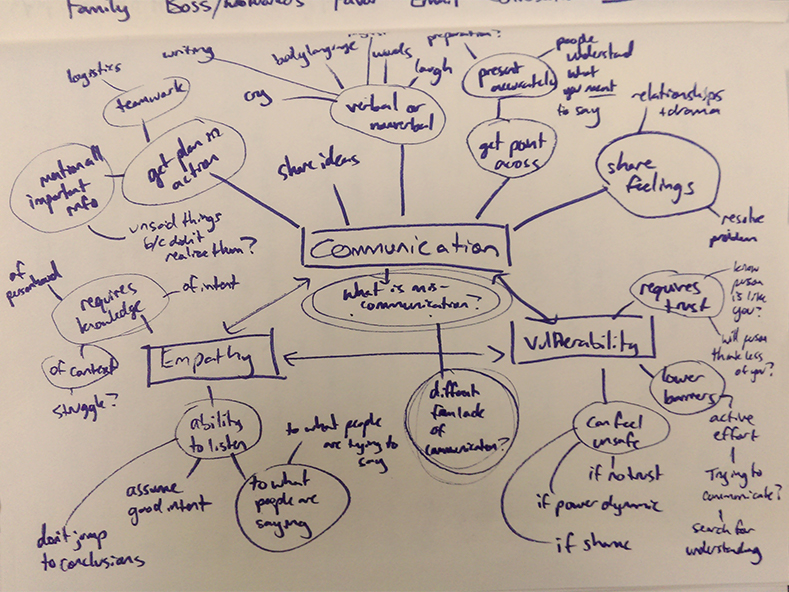 Family Boss/ Favor Email
writing
bodylanguage
words
preparation?
logistics
teamwork
cry
verbal or
nonverbal
laugh
present
accurately
people
understand
what
you meant
to say
relationships
+ drama
important
info
get plan in
action
share ideas
get point
across
share
feelings
unsaid things
b/c don't
realize them?
resolve
problem
Communication
of
requires
knowledge
of intent
What is mis-
communication?
requires
trust
know
person
is like
you?
will person
think less
of you?
of context
struggle?
Empathy
Vulnerability
lower
barriers
different
from lack
of
communication?
ability
to listen
to what people
are trying to
say
can feel
unsafe
active
effort
assume
good intent
to what
people are
saying
if no trust
if power dynamic
if shame
Trying to
communicate?
search for
understanding
don't jump
to conclusions